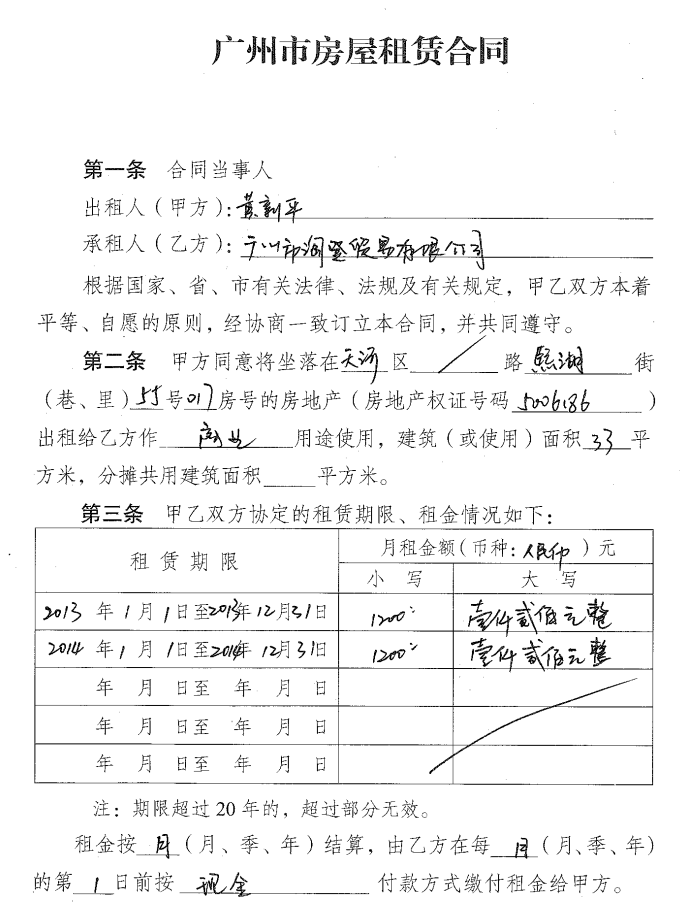 广州市房屋租赁合同
第一条 合同当事人
出租人（甲方）：黄新平
承租人（乙方）：广州市润盛贸易有限公司
根据国家、省、市有关法律、法规及有关规定，甲乙双方本着
平等、自愿的原则，经协商一致订立本合同，并共同遵守。
第二条 甲方同意将坐落在天河区 / 路 湖 街
（巷、里）55号017房号的房地产（房地产权证号码 5006186 ）
出租给乙方作 商业 用途使用，建筑（或使用）面积 33 平
方米，分摊共用建筑面积 平方米。
第三条 甲乙双方协定的租赁期限、租金情况如下：
租赁期限 月租金额（币种：人民币）元
小写 大写
2013 年 1 月 1 日至 2013 年 12 月 31 日 1200 壹仟贰佰元整
2014 年 1 月 1 日至 2014 年 12 月 31 日 1200 壹仟贰佰元整
年 月 日至 年 月 日
年 月 日至 年 月 日
年 月 日至 年 月 日
注：期限超过 20 年的，超过部分无效。
租金按 月（月、季、年）结算，由乙方在每 月（月、季、年）
的第 1 日前按 现金 付款方式缴付租金给甲方。